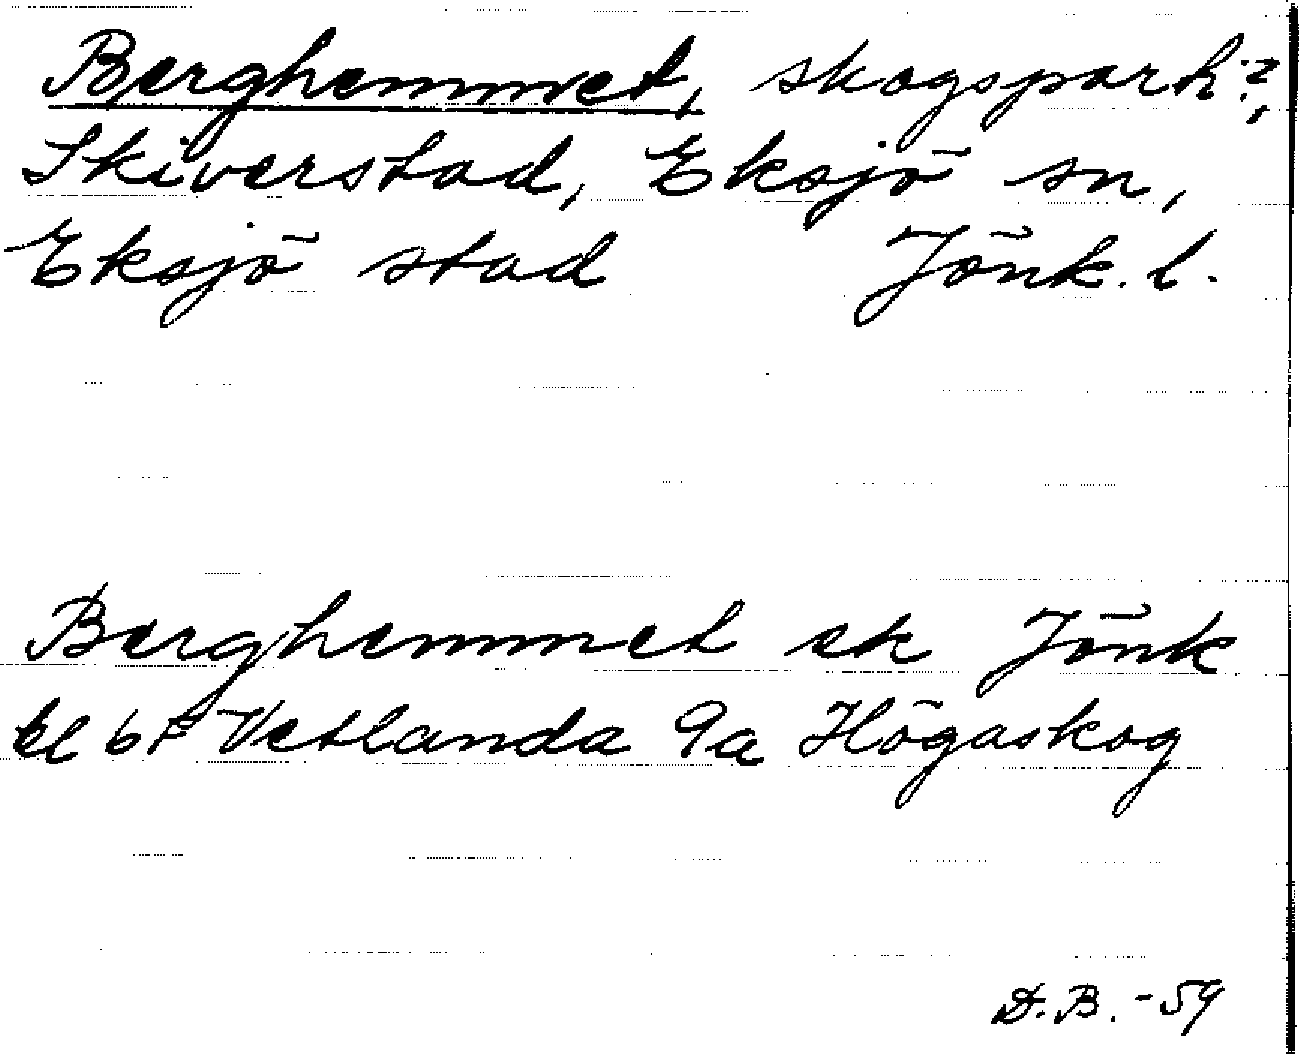 Berghemmet, skogspark?,
Skiverstad, Eksjö sn,
Eksjö stad Jönk. l.
Berghemmet ek Jönk
bl 6f Vetlanda 9a Högaskog
D.B. -59